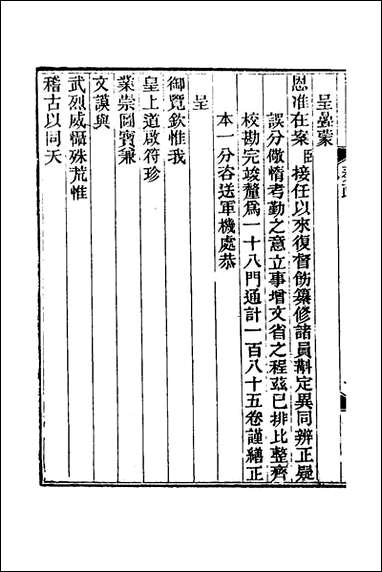 呈彙蒙
恩准在案臣接任以來復督飭纂修諸員斠定異同辨正疑
誤分儆惰考勤之意立事增文省之程茲已排比整齊
校勘完竣釐爲一十八門通計一百八十五卷謹繕正
本一分咨送軍機處恭
呈
御覽欽惟我
皇上道啟符珍
業崇圖寶兼
文謨與
武烈威懾殊荒惟
稽古以同天